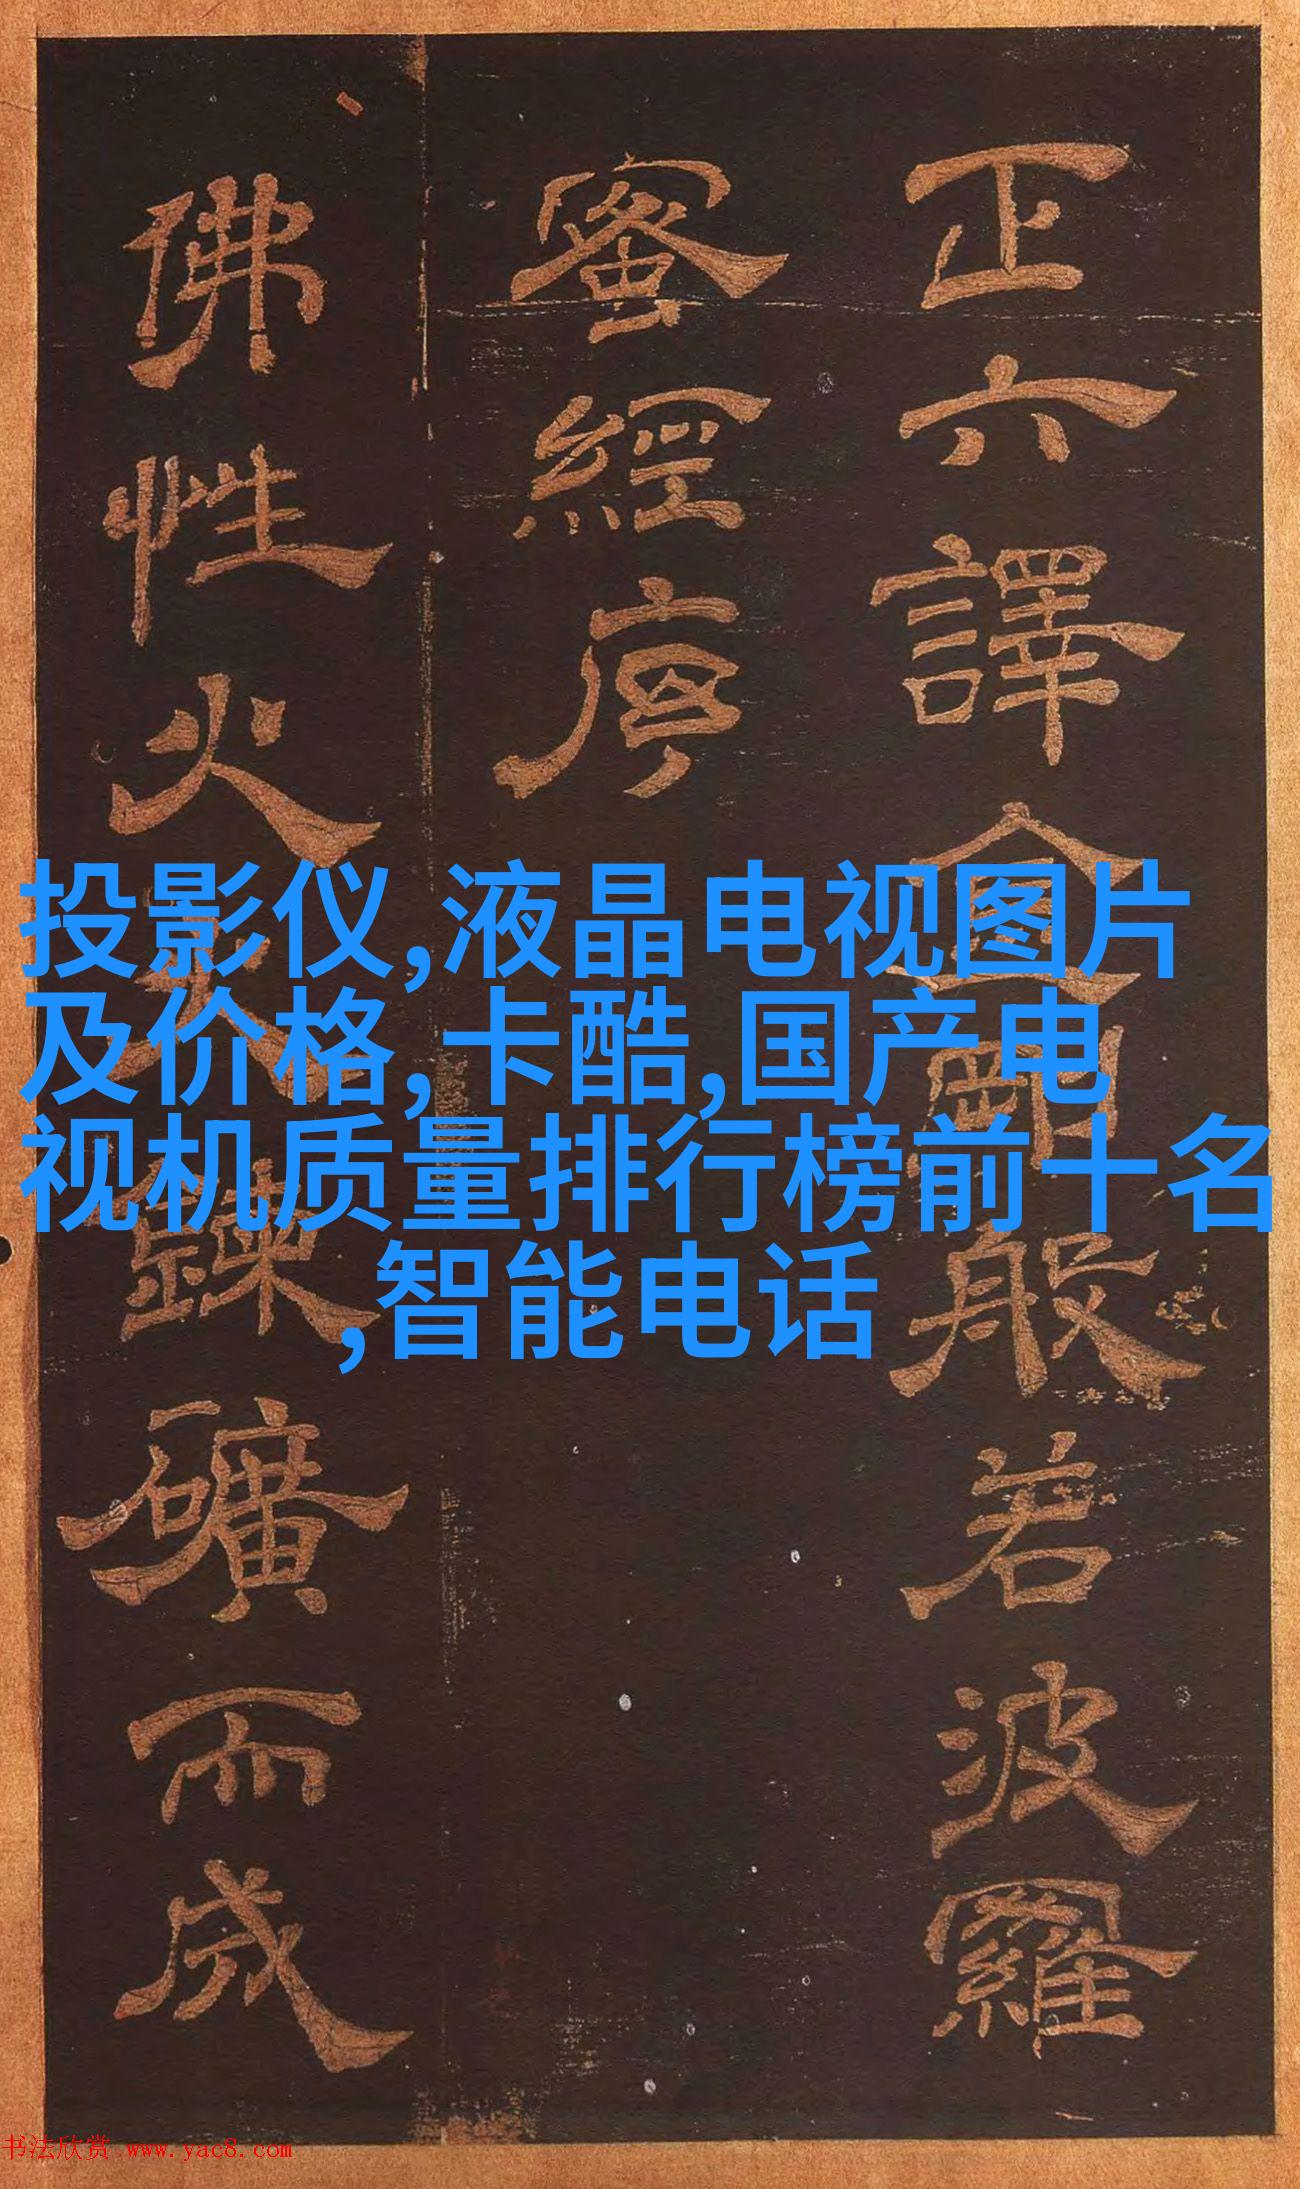 正六譯金剛般若波羅
蜜經序
佛性火來鍊礦而成
投影仪,液晶电视图片
及价格,卡酷,国产电
视机质量排行榜前十名
,智能电话
书法欣赏 www.yac8.com